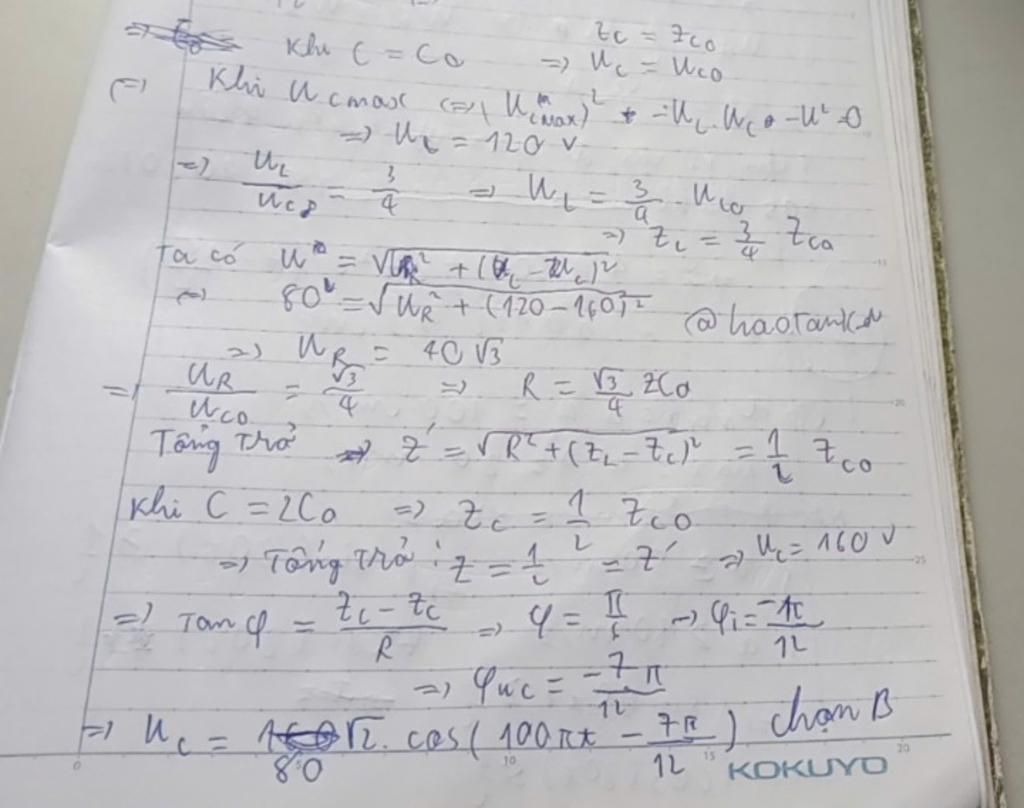 Khi C = C₀ ⇒ Z_C = Z_C₀
⇒ U_C = U_C₀
(=) Khi U_Cmax (=) (U_Cmax)² - U_L.U_C₀ - U² = 0
⇒ U_L = 120 V
⇒ U_L/U_C₀ = 3/4 ⇒ U_L = 3/4 U_C₀
⇒ Z_L = 3/4 Z_C₀
Ta có U = √(U_R² + (U_L - U_C)²)
(=) 80 = √(U_R² + (120 - 160)²)
⇒ U_R = 40√3
⇒ U_R/U_C₀ = √3/4 ⇒ R = √3/4 Z_C₀
Tổng trở ⇒ Z' = √(R² + (Z_L - Z_C)²) = 1/2 Z_C₀
Khi C = 2C₀ ⇒ Z_C = 1/2 Z_C₀
⇒ Tổng trở : Z = 1/2 = Z' ⇒ U_C = 160 V
⇒ Tan φ = (Z_L - Z_C)/R ⇒ φ = π/6 → φi = -π/12
⇒ φ_uC = -7π/12
⇒ U_C = 80√2. cos(100πt - 7π/12) chọn B
0 5 10 15 20
KOKUYO